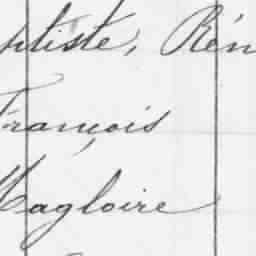 ptiste, Rén
François
Magloire